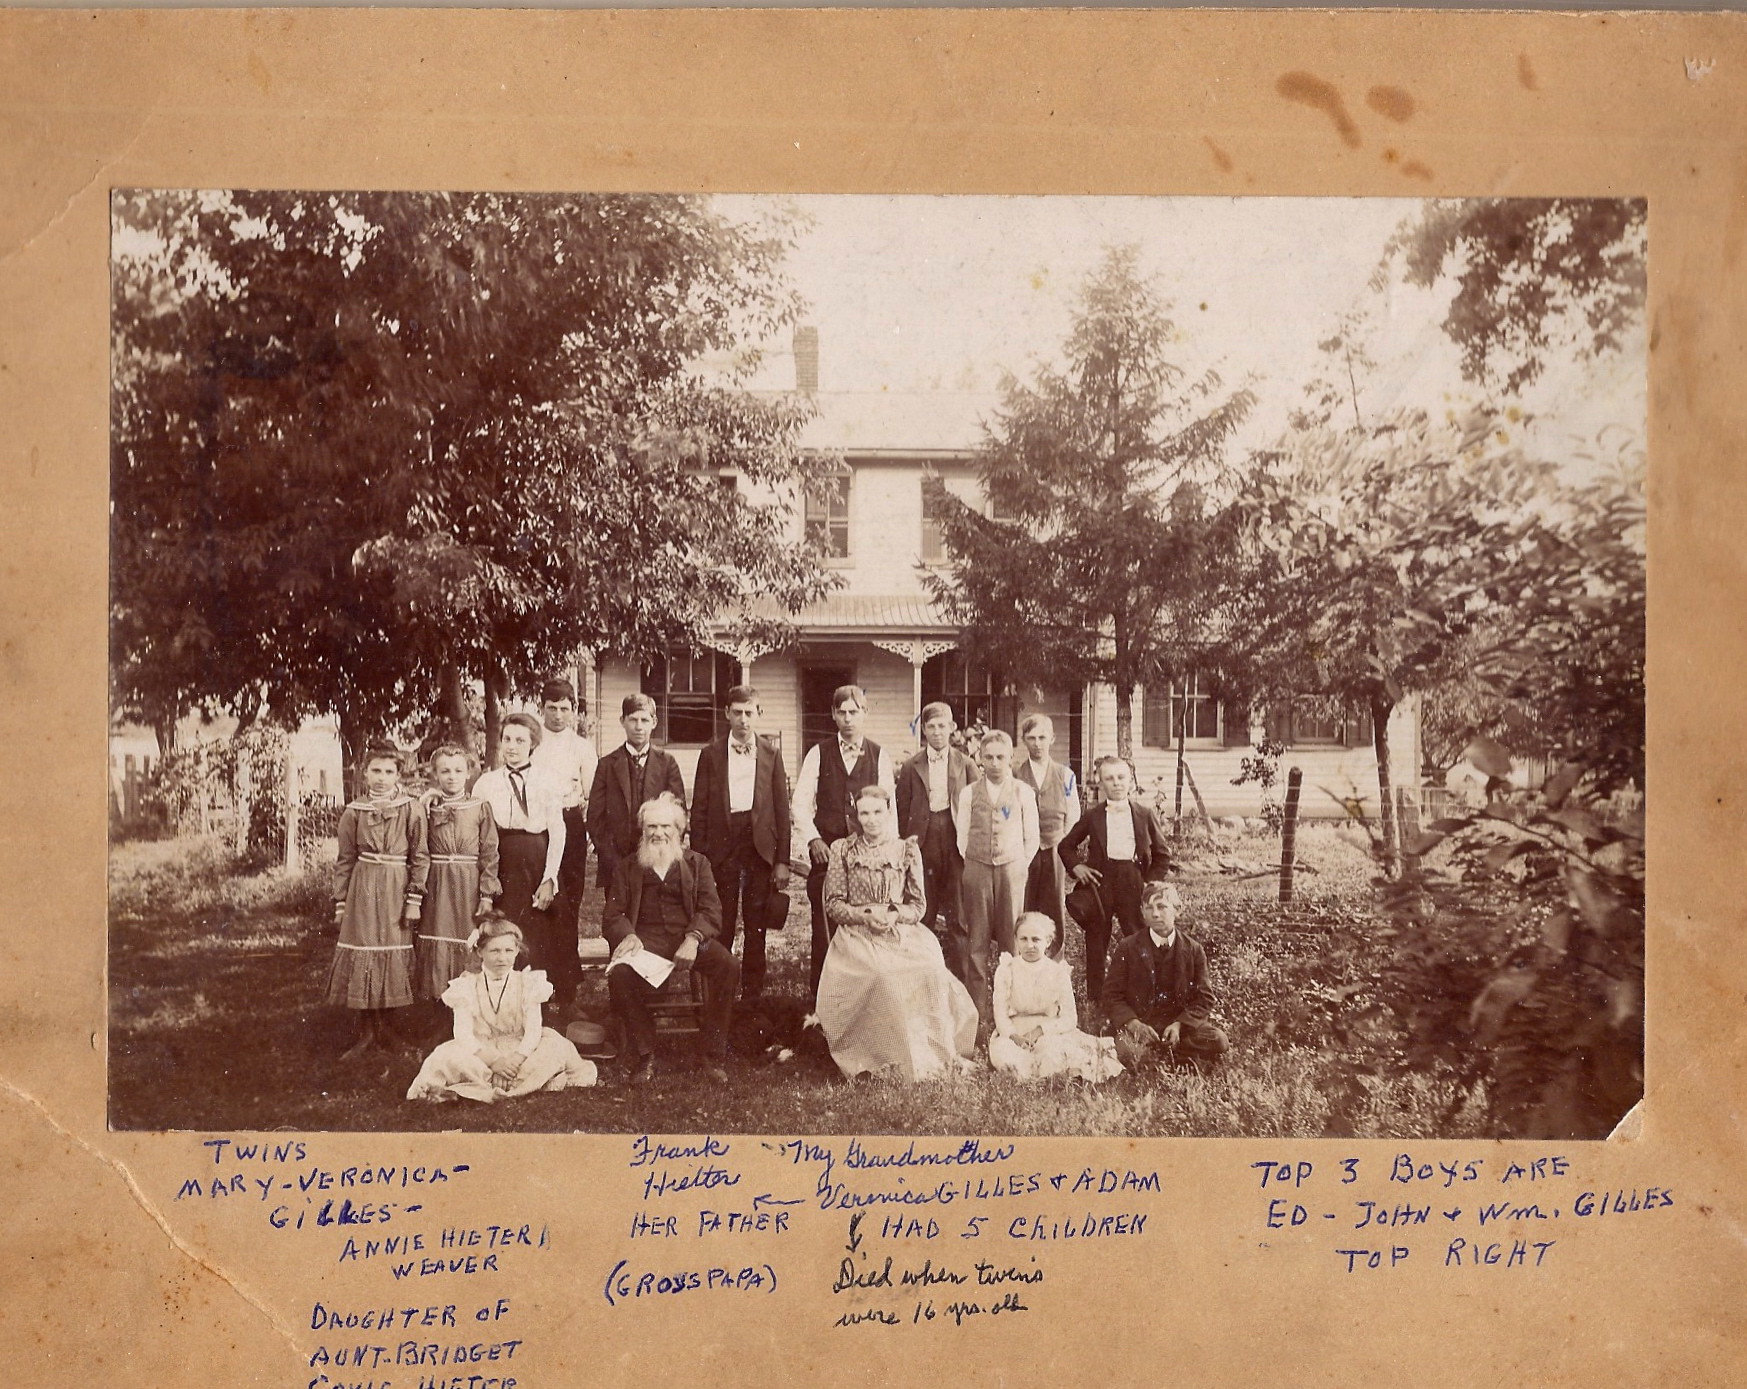 TWINS
MARY-VERONICA-
GILLES-
ANNIE HIETER
WEAVER
DAUGHTER OF
AUNT-BRIDGET
HIETER
Frank
Hietter
HER FATHER
(GROSSPAPA)
My Grandmother
Veronica GILLES & ADAM
HAD 5 CHILDREN
Died when twins
were 16 yrs. old
TOP 3 BOYS ARE
ED - JOHN & Wm. GILLES
TOP RIGHT